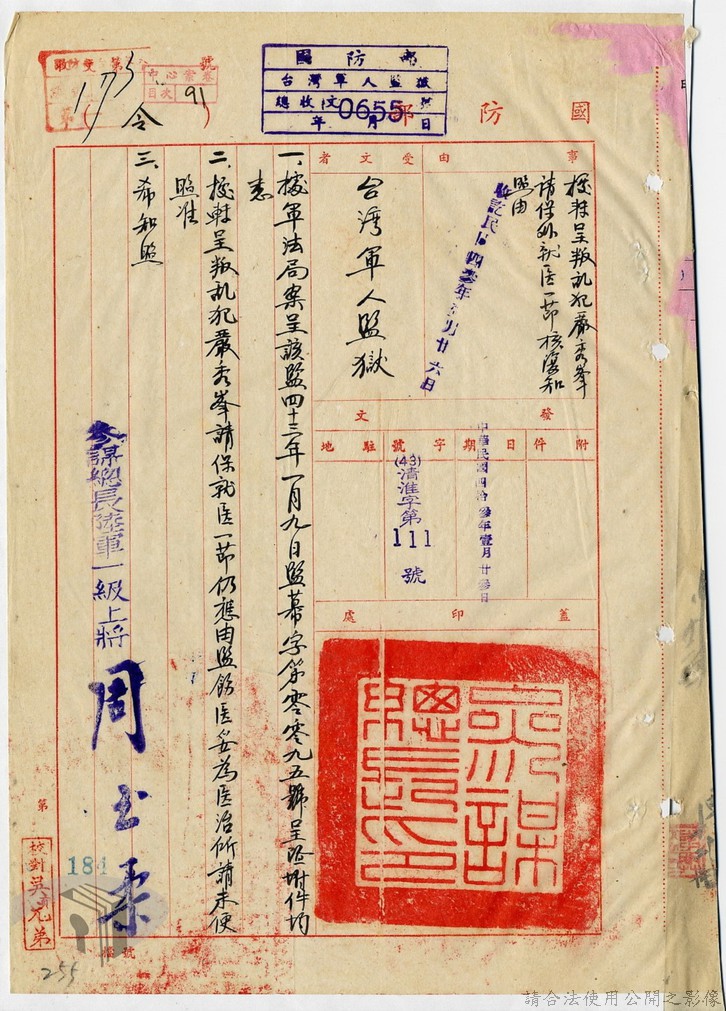 國防部
令
國防部
台灣軍人監獄
總收文0655號
年 月 日
收 文 第 號
中心案卷
目次 91
175
事由
核轉呈叛乱犯嚴秀峯
請保外就医一節核復知
照由
受文者
台湾軍人監獄
民国四叁年壹月廿六日
附件
日期
中華民國四拾叁年壹月廿叁日
字號
(43)清淮字第
111
號
駐地
發文
蓋印處
參謀總長印
一、據軍法局案呈該監四十三年一月九日監幕字第零零九五號呈暨附件均
悉
二、核轉呈叛乱犯嚴秀峯請保就医一節仍應由監飭医妥為医治所請未便
照准
三、希知照
參謀總長陸軍一級上將
周至柔
第
184
號
校對吳兄弟
255
請合法使用公開之影像